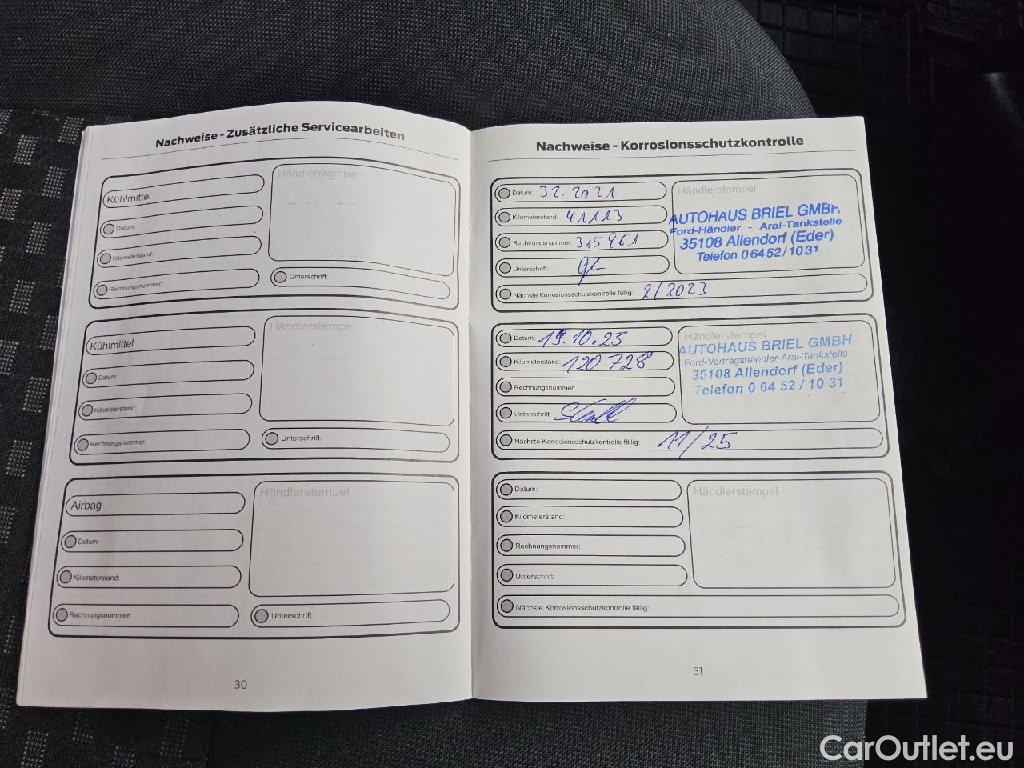 Nachweise - Zusätzliche Servicearbeiten
Kühlmittel
Händlerstempel
Datum:
Kilometerstand:
Rechnungsnummer:
Unterschrift:
Kühlmittel
Händlerstempel
Datum:
Kilometerstand:
Rechnungsnummer:
Unterschrift:
Airbag
Händlerstempel
Datum:
Kilometerstand:
Rechnungsnummer:
Unterschrift:
30
Nachweise - Korrosionsschutzkontrolle
Datum:
Händlerstempel
Kilometerstand: 41113
Rechnungsnummer: 315961
Unterschrift:
AUTOHAUS BRIEL GMBH
Ford-Händler - Aral-Tankstelle
35108 Allendorf (Eder)
Telefon 0 64 52 / 10 31
Nächste Korrosionsschutzkontrolle fällig: 2/2023
Datum: 19.10.23
Händlerstempel
Kilometerstand: 120 728
Rechnungsnummer:
Unterschrift:
AUTOHAUS BRIEL GMBH
Ford-Vertragshändler-Aral-Tankstelle
35108 Allendorf (Eder)
Telefon 0 64 52 / 10 31
Nächste Korrosionsschutzkontrolle fällig: 11/25
Datum:
Händlerstempel
Kilometerstand:
Rechnungsnummer:
Unterschrift:
Nächste Korrosionsschutzkontrolle fällig:
31
CarOutlet.eu